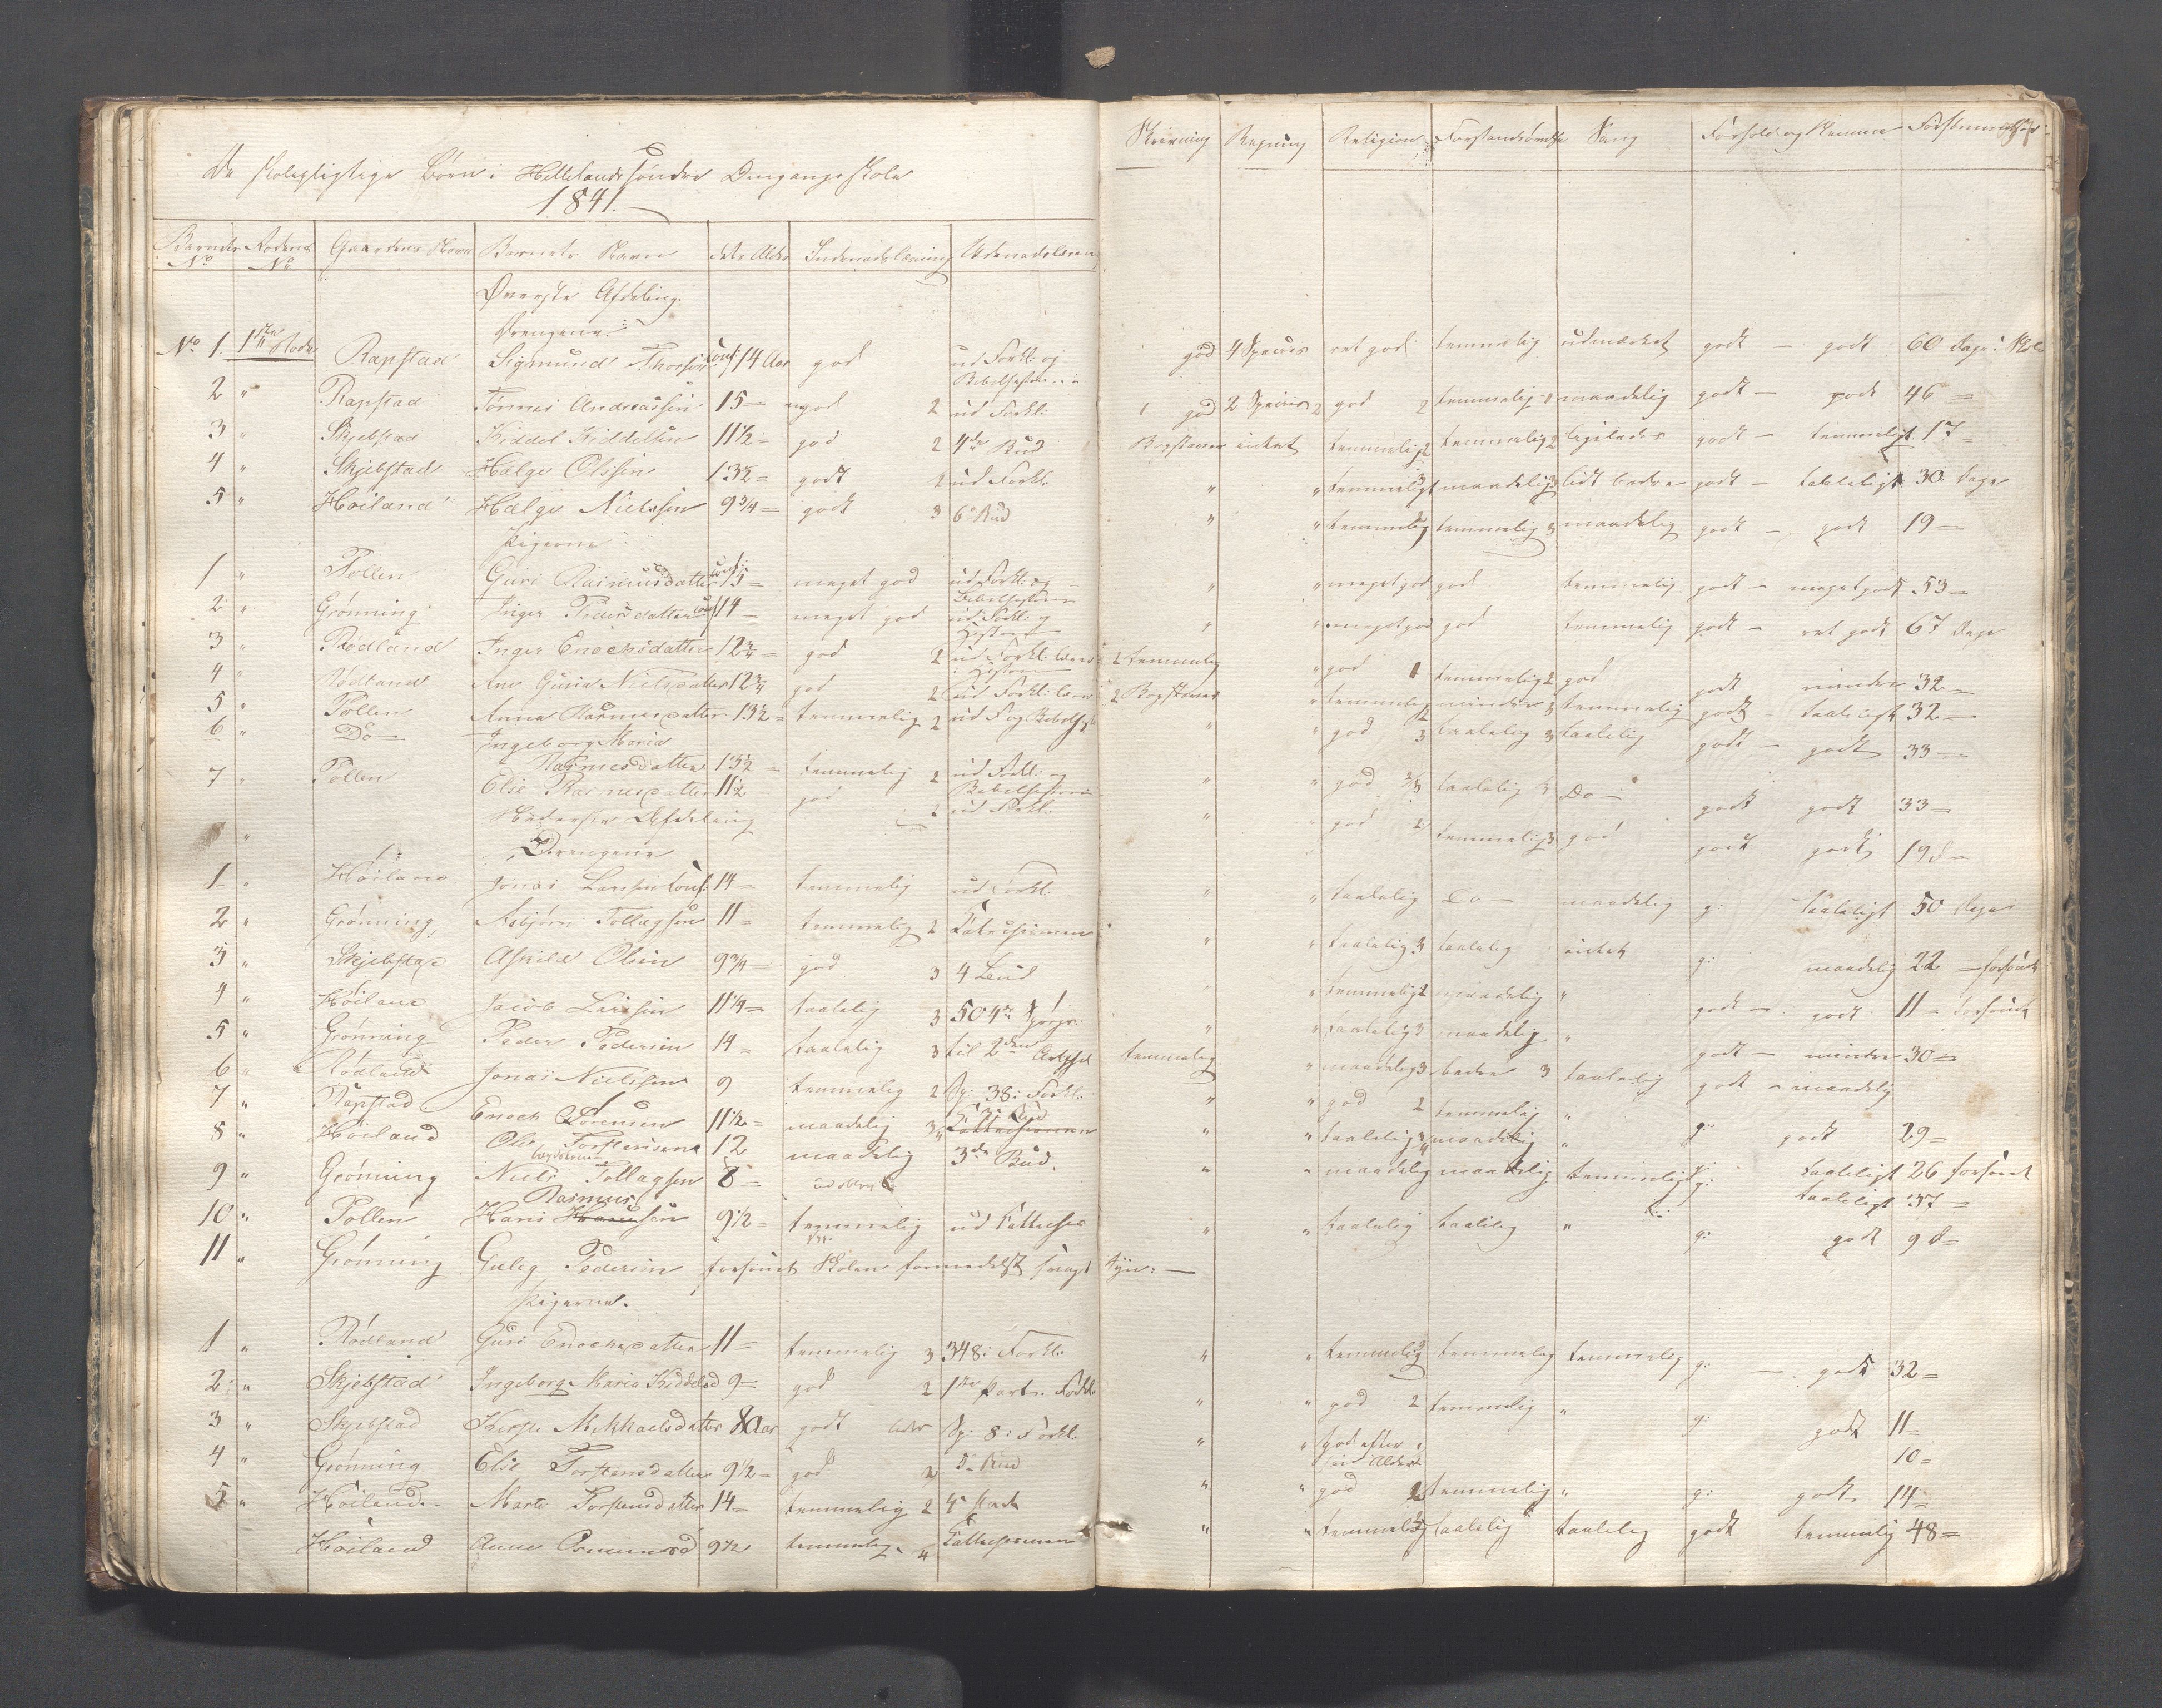 De skolepligtige Børn i Hellelands søndre Omgangsskole
1841.
Barnets No Rodens No Gaardens Navn Barnets Navn dets Alder Indenadslæsning Udenadslæsen Skrivning Regning Religion Forstandsøvelse Sang Forhold og Nemme Forsømmelser
Øverste Afdeling.
Drengene:
No 1. 1ste Rode Rapstad Sigmund Thorsen conf: 14 Aar god ud Forkl. og Bibelhistorien god 4 Species ret god temmelig udmærket godt — godt 60 Dage i Skole
2 " Rapstad Tønnes Andreassen 15 — god 2 ud Forkl: god 2 Species 2 god 2 temmelig maadelig godt — godt 46 —
3 " Skjebstad Kiddel Kiddelsen 11 1/2 = god 2 4de Bud Bogstaver intet temmelig 2 temmelig 2 ligeledes godt — temmeligt 17 —
4 " Skjebstad Helge Olssen 13 1/2 = godt 2 ud Forkl: " " temmeligt 3 maadelig 3 lidt bedre godt — taaleligt 30 Dage
5 " Høiland Helge Nielssen 9 3/4 = godt 3 6te Bud " " temmelig 2 temmelig 3 maadelig godt — godt 19 —
Pigerne
1 " Pollen Guri Rasmusdatter conf: 15 = meget god ud Forkl: og Bibelhistorien " " meget god god temmelig godt — meget godt 53 —
2 " Grønning Inger Pedersdatter conf 14 — meget god ud Forkl: og Historien " " meget god god temmelig godt — ret godt 67 Dage
3 " Rødland Inger Enochsdatter 12 3/4 = god 2 ud Forkl: læser i Historien 2 temmelig " god 1 temmelig 2 god godt mindre 32 —
4 " Rødland Ane Guria Nielsdatter 12 3/4 god 2 ud Forkl: 2 Bogstaver " temmelig 2 mindre 3 temmelig godt taaleligt 32 —
5 " Pollen Anna Rasmusdatter 13 1/2 = temmelig 2 ud F og Bibelhist " " god 3 taalelig 3 taalelig godt — godt 33 —
6 " Do — Ingeborg Maria
Rasmesdatter 13 1/2 = temmelig 2 ud Forkl: og Bibelhistorien " " god 2/3 taalelig 3 Do — godt godt 33 —
7 " Pollen Elie Rasmesdatter 11 1/2 god 2 ud Forkl: " " god 2 temmelig 3 god godt godt 19 —
Nederste Afdeling
Drengene
1 " Høiland Jonas Larsen conf: 14 — temmelig ud Forkl: " " taalelig Do — maadelig g: taaleligt 50 Dage
2 " Grønning Asbjørn Tollagsen 11 = temmelig 2 Katechismen " " taalelig 3 taalelig intet g: maadelig 22 — forsømt
3 " Skjebstad Askild Olsen 9 3/4 god 3 4 Bud " " temmelig 2 maadelig " godt — godt 11 — forsømt
4 " Høiland Jacob Larssen 11 1/4 = taalelig 3 504de Spørgs: " " taalelig 3 maadelig " godt — mindre 30 =
5 " Grønning Peder Pedersen 14 = taalelig 3 til 2den Artikel temmelig " maadelig 3 bedre 3 taalelig godt — maadelig
6 " Rødland Jonas Nielsen 9 temmelig 2 Sp: 38: Forkl: " " god 2 temmelig " g: godt 29 =
7 " Rapstad Enoch Sørensen 11 1/2 = maadelig 3 Bud " " taalelig 3 maadelig " g: taaleligt 26 forsømt
8 " Høiland Ole Torstensen 12 maadelig 3die Bud. " " maadelig maadelig temmelig g: taaleligt 37 =
9 " Grønning Niels Tollagsen 8 =
10 " Pollen Hans Rasmussen 9 1/2 = temmelig ud Kattechis " " taalelig taalelig " g: godt 9 =
11 " Grønning Guleg Pedersen forsømt Skolen formedelst svagt Syn: —
Pigerne.
1 " Rødland Guri Enochsdatter 11 = temmelig 3 348: Forkl: " " temmelig 3 temmelig temmelig g: — godt 32 =
2 " Skjebstad Ingeborge Maria Kiddelsd 9 = god 2 1ste Part: Forkl " " god 2 temmelig " g: godt 11 =
3 " Skjebstad Mikkaelsdatter 8 Aar godt Sp: 8: Forkl: " " god efter sin Alder 10 =
4 " Grønning Elie Torstensdatter 9 1/2 = god 2 5te Bud " " god 2 temmelig " g: godt 14 =
5 " Høiland — Marte Torstensdatter 14 = temmelig 2 4de Part " " temmelig 3 taalelig taalelig godt temmelig 48 =
Høiland Anne Osmundsd 9 1/2 temmelig 4 Kattechismen